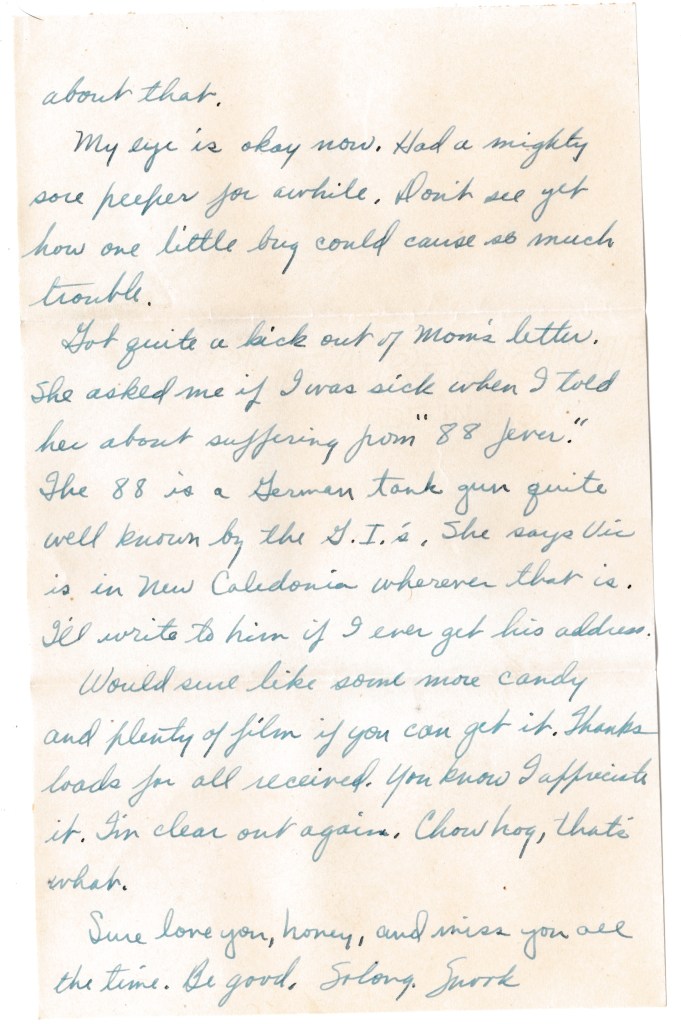 about that.
My eye is okay now. Had a mighty
sore peeper for awhile. Don't see yet
how one little bug could cause so much
trouble.
Got quite a kick out of Mom's letter.
She asked me if I was sick when I told
her about suffering from "88 fever."
The 88 is a German tank gun quite
well known by the G.I.'s. She says Vic
is in New Caledonia wherever that is.
I'll write to him if I ever get his address.
Would sure like some more candy
and plenty of film if you can get it. Thanks
loads for all received. You know I appreciate
it. I'm clear out again. Chow hog, that's
what.
Sure love you, honey, and miss you all
the time. Be good. So long. Snook